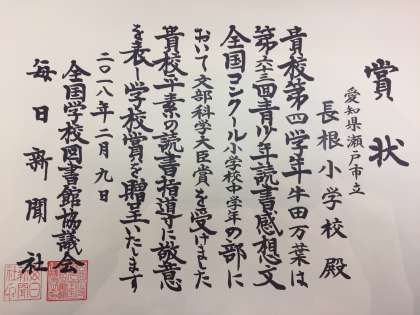 賞状
愛知県瀬戸市立
長根小学校殿
貴校第四学年牛田万葉は
第六十三回青少年読書感想文
全国コンクール小学校中学年の部に
おいて文部科学大臣賞を受けました
貴校平素の読書指導に敬意
を表し学校賞を贈呈いたします
二〇一八年二月九日
全国学校図書館協議会
毎日新聞社